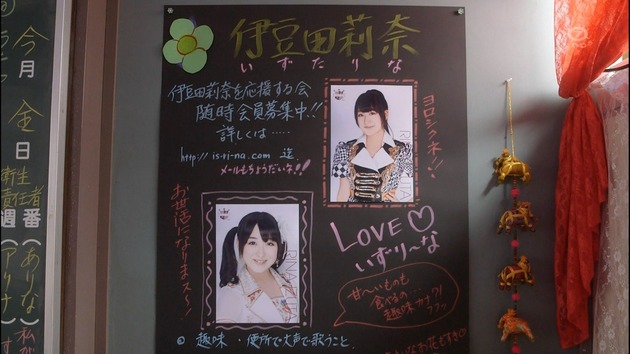 今
月
金
日
新生
責任者
週番
(ありな
(アリナ
私が
伊豆田莉奈
いずたりな
伊豆田莉奈を応援する会
随時会員募集中!!
詳しくは……
http://is-ri-na.com 迄
メールもちょうだいな!!
ヨロシクネ!!
お世話になりまス〜!
LOVE♡
いずり〜な
甘〜いものも
食べるの…
趣味カナ?!
フフッ
◎ 趣味・便所で大声で歌うこと。